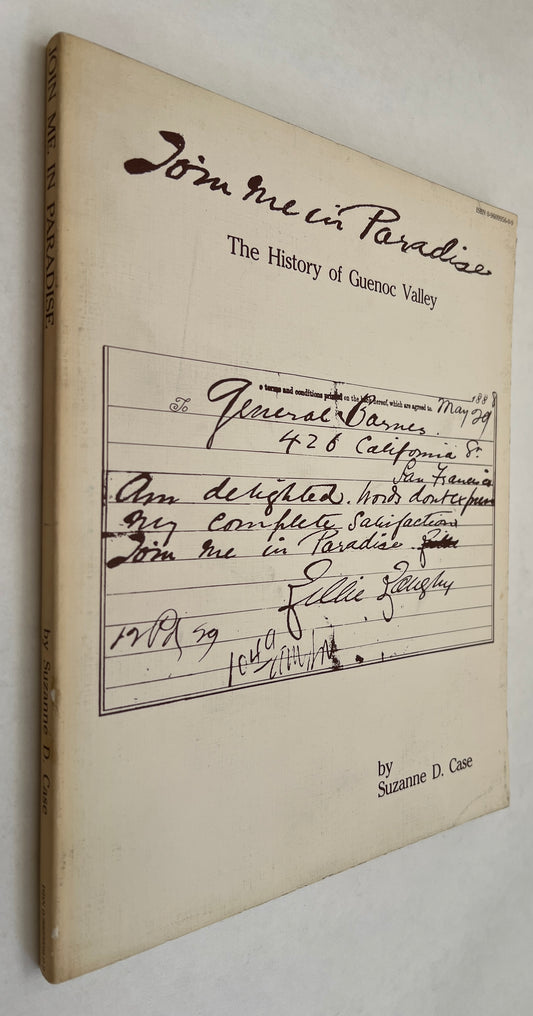 JOIN ME IN PARADISE
by Suzanne D. Case
Join Me in Paradise
The History of Guenoc Valley
terms and conditions printed on the back hereof, which are agreed to.
1888
May 29
To General Barnes.
426 California St
San Francisco
Am delighted. Words dont express
My complete Satisfaction
Join me in Paradise
Lillie Langtry
12 Pd 29
by
Suzanne D. Case